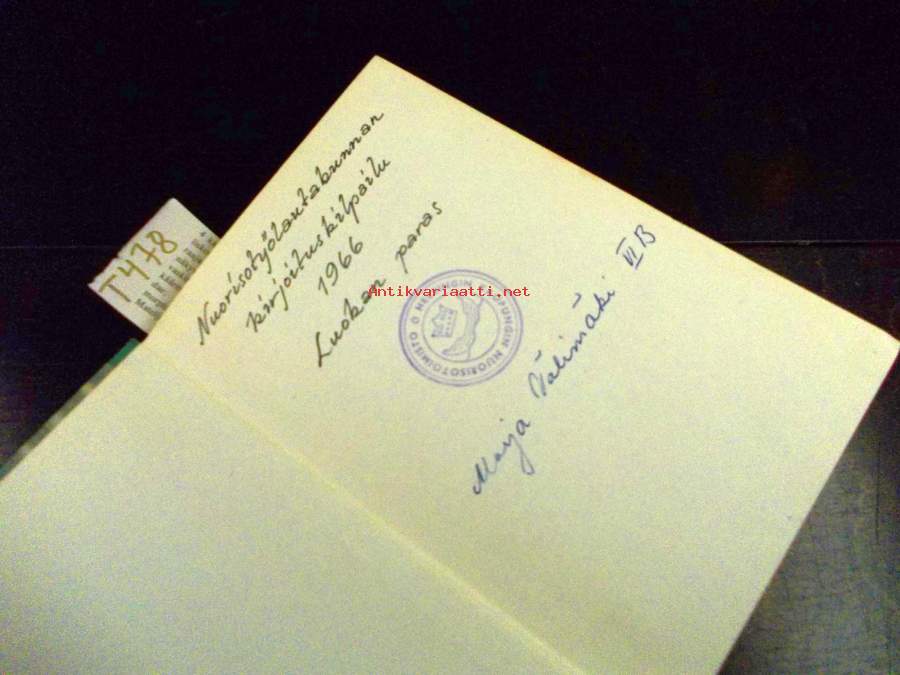 Nuorisotyölautakunnan
kirjoituskilpailu
1966
Luokan paras
Antikvariaatti.net
NUORISOTOIMISTO O HELSINGIN KAUPUNGIN
Maija Välimäki VI B
T478